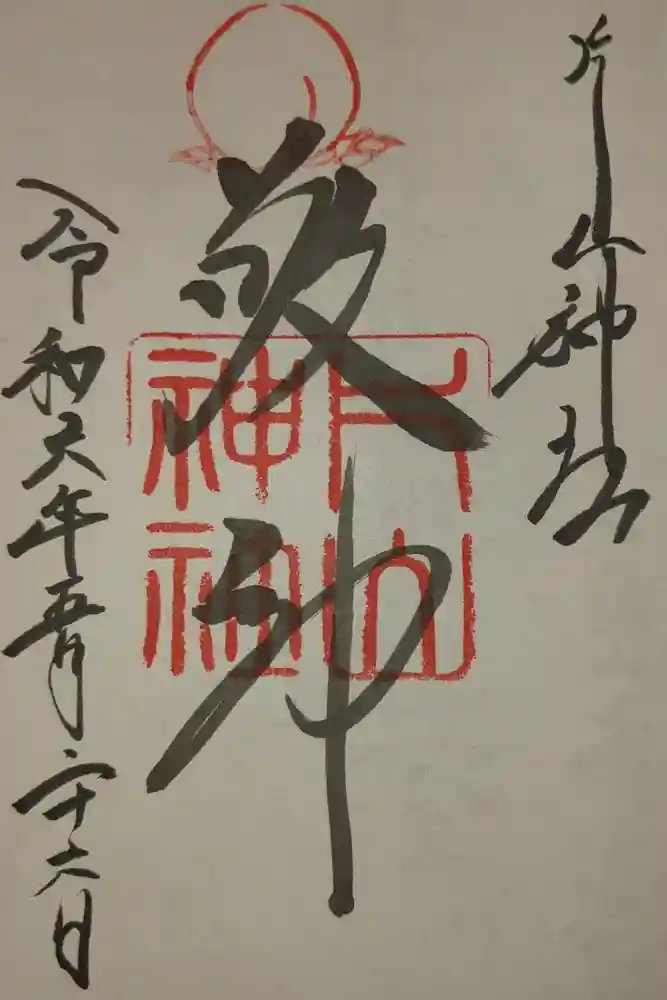 片山神社
敬神
令和元年五月二十六日
片山
神社